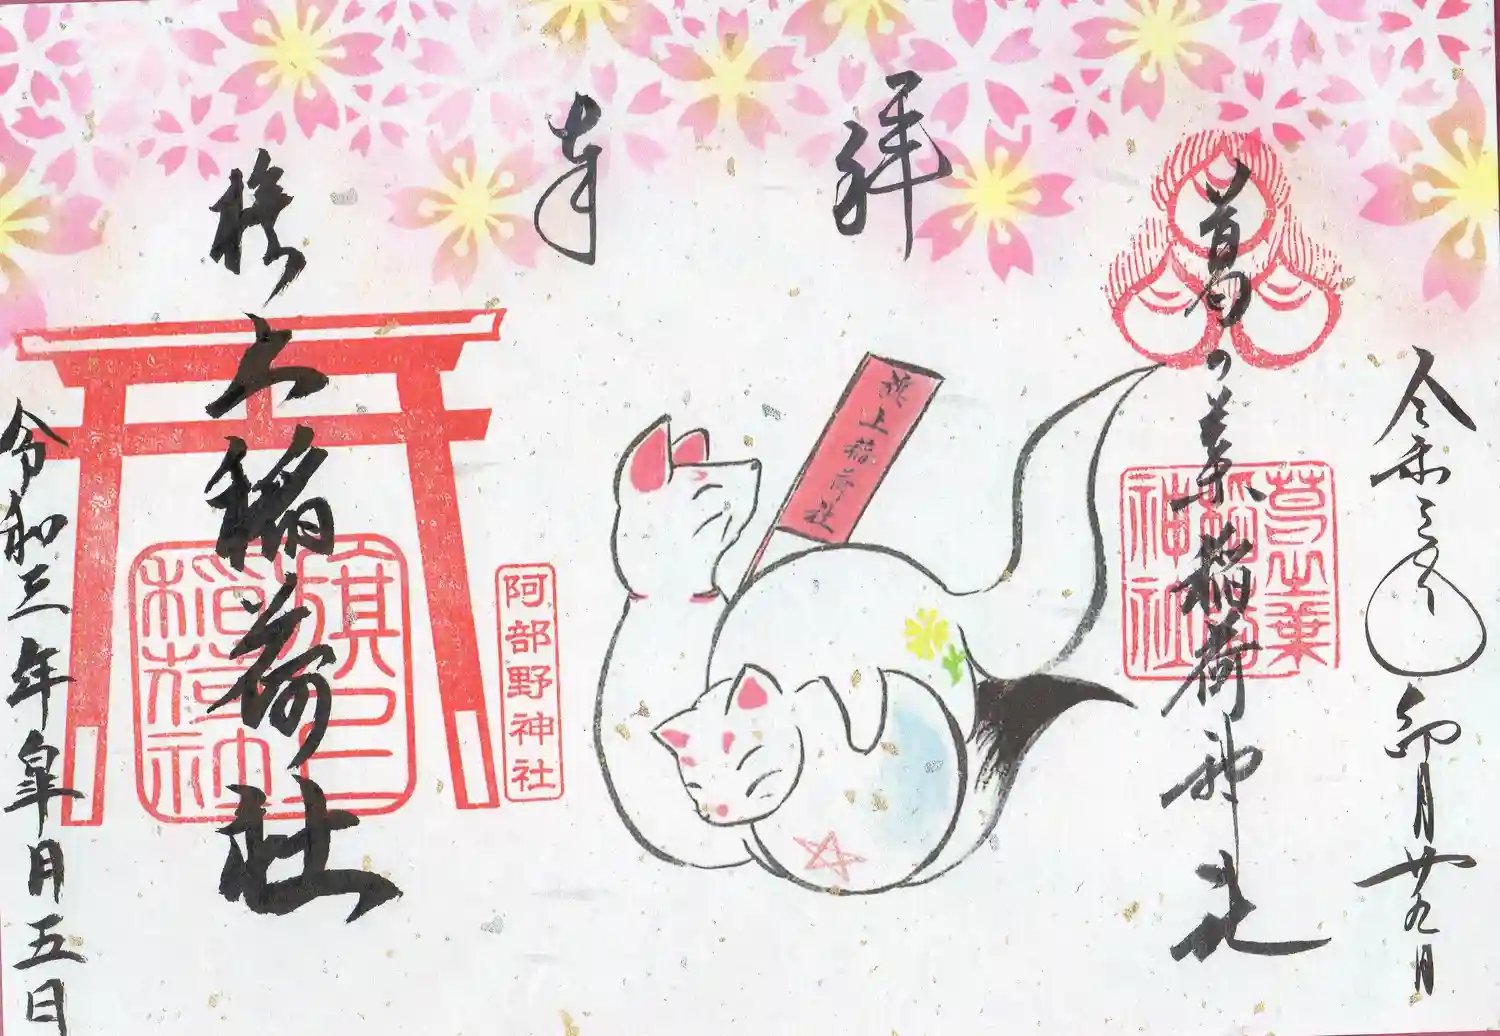 令和三年卯月廿九日
葛の葉稲荷神社
葛之葉
稲荷
神社
拝
奉
旗上稲荷社
阿部野神社
旗上稲荷社
令和三年皐月五日